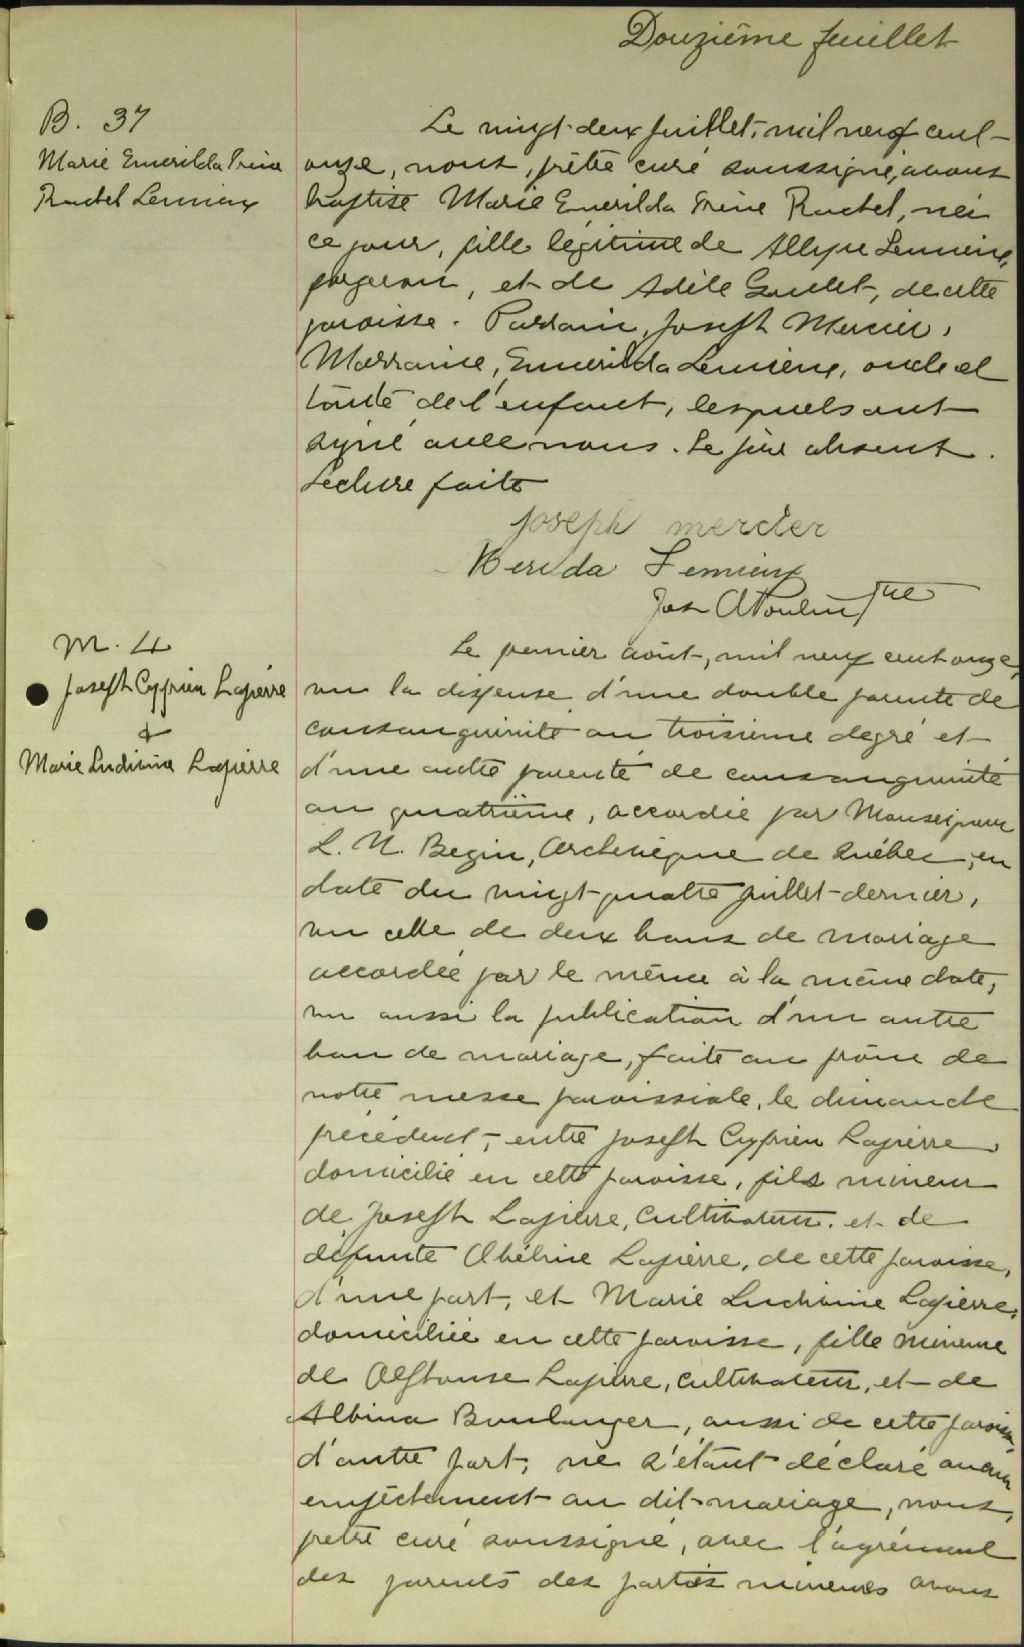 Douzième feuillet
B. 37
Marie Emerilda Irène
Rachel Lemieux
Le vingt-deux juillet, mil neuf cent-
onze, nous, prêtre curé soussigné, avons
baptisé Marie Emerilda Irène Rachel, née
ce jour, fille légitime de Allyre Lemieux,
forgeron, et de Adèle Goulet, de cette
paroisse. Parrain, Joseph Mercier,
Marraine, Emerilda Lemieux, oncle et
tante de l'enfant, lesquels ont
signé avec nous. Le père absent.
Lecture faite
Joseph mercier
Lemieux
Jos A Poulin Ptre
M. 4
Joseph Cyprien Lapierre
&
Marie Ludivine Lapierre
Le premier août, mil neuf cent onze,
vu la dispense d'une double parenté de
consanguinité au troisième degré et
d'une autre parenté de consanguinité
au quatrième, accordée par Monseigneur
L. N. Begin, Archevêque de Québec, en
date du vingt-quatre juillet dernier,
vu celle de deux bans de mariage
accordée par le même à la même date,
vu aussi la publication d'un autre
ban de mariage, faite au prône de
notre messe paroissiale, le dimanche
précédent, entre Joseph Cyprien Lapierre
domicilié en cette paroisse, fils mineur
de Joseph Lapierre, cultivateur, et de
défunte Lapierre, de cette paroisse,
d'une part, et Marie Ludivine Lapierre,
domiciliée en cette paroisse, fille mineure
de Alphonse Lapierre, cultivateur, et de
Albina Boulanger, aussi de cette paroisse,
d'autre part, ne s'étant déclaré aucun
empêchement au dit mariage, nous,
prêtre curé soussigné, avec l'agrément
des parents des parties mineures avons